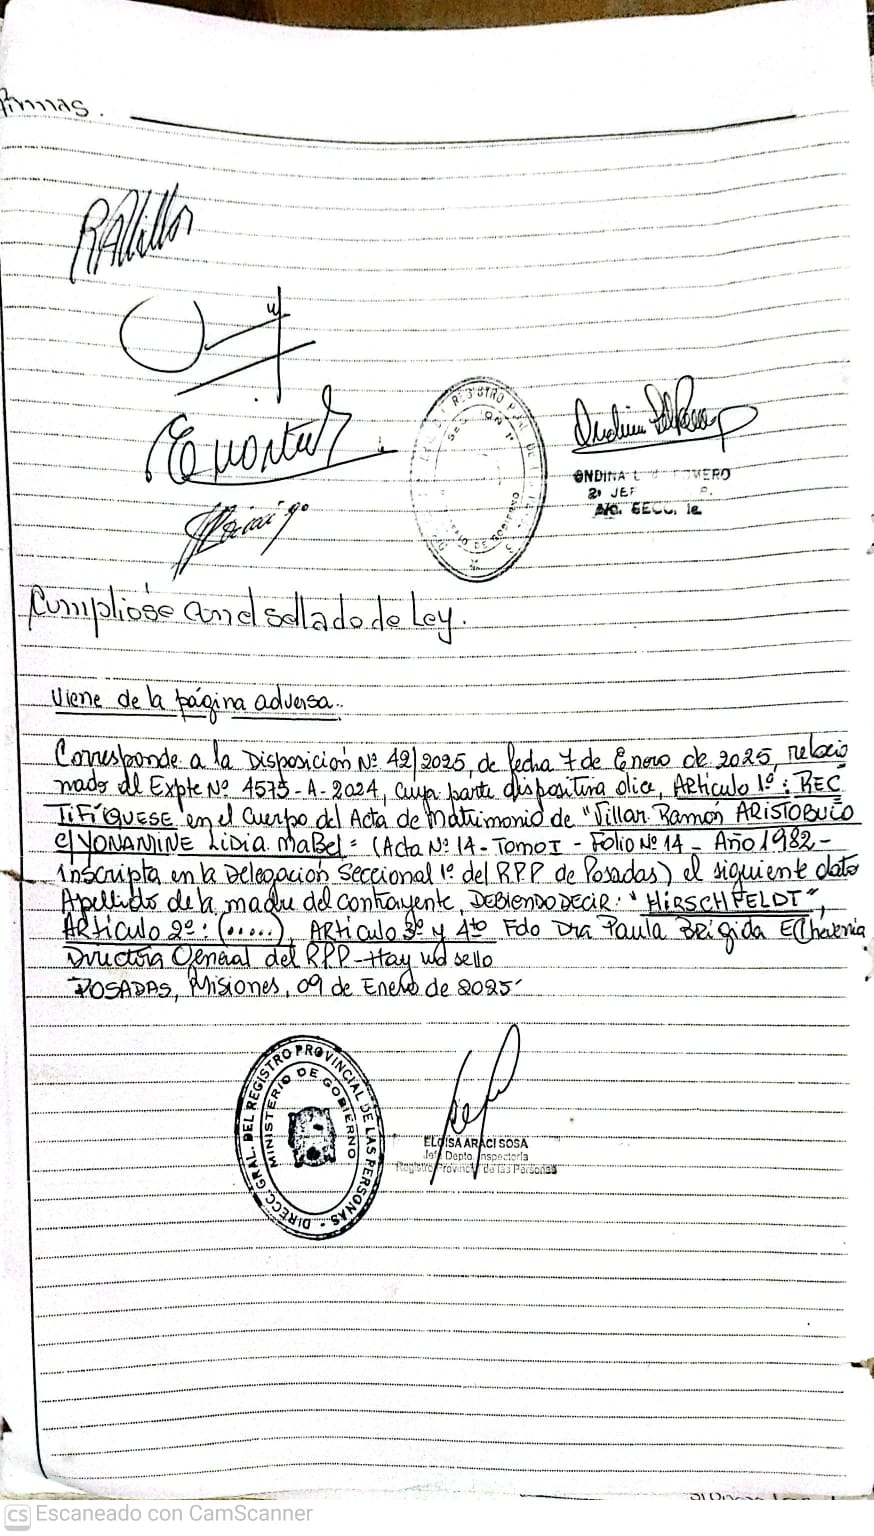 Firmas.
RAVillar
ONDINA L
ROMERO
2º JEF
P.
SECC. 1a
REGISTRO
SECCION 1ª
DE GOBIERNO
Cumplióse con el sellado de Ley.
Viene de la página adversa..
Corresponde a la Disposición Nº 42/2025, de fecha 7 de Enero de 2025, relacio
nado al Expte Nº 4573-A-2024, cuya parte dispositiva dice, Artículo 1º: REC
TIFÍQUESE en el Cuerpo del Acta de Matrimonio de "Villar Ramón ARISTOBULO
c/ YONAMINE LiDia MaBel" (Acta Nº 14 - Tomo I - Folio Nº 14 - Año 1982 -
inscripta en la Delegación Seccional 1º del RPP de Posadas) el siguiente dato
Apellido de la madre del contrayente, DEBIENDO DECIR: "HIRSCHFELDT",
ARtículo 2º: (.....), ARtículo 3º y 4to Fdo Dra Paula Brígida EChevenia
Directora General del RPP-Hay un sello
POSADAS, Misiones, 09 de Enero de 2025-
DIRECC. GRAL. DEL REGISTRO PROVINCIAL DE LAS PERSONAS -
MINISTERIO DE GOBIERNO
ELOISA ARACI SOSA
Jefe Depto. Inspectoría
Registro Provincial de las Personas
CS Escaneado con CamScanner